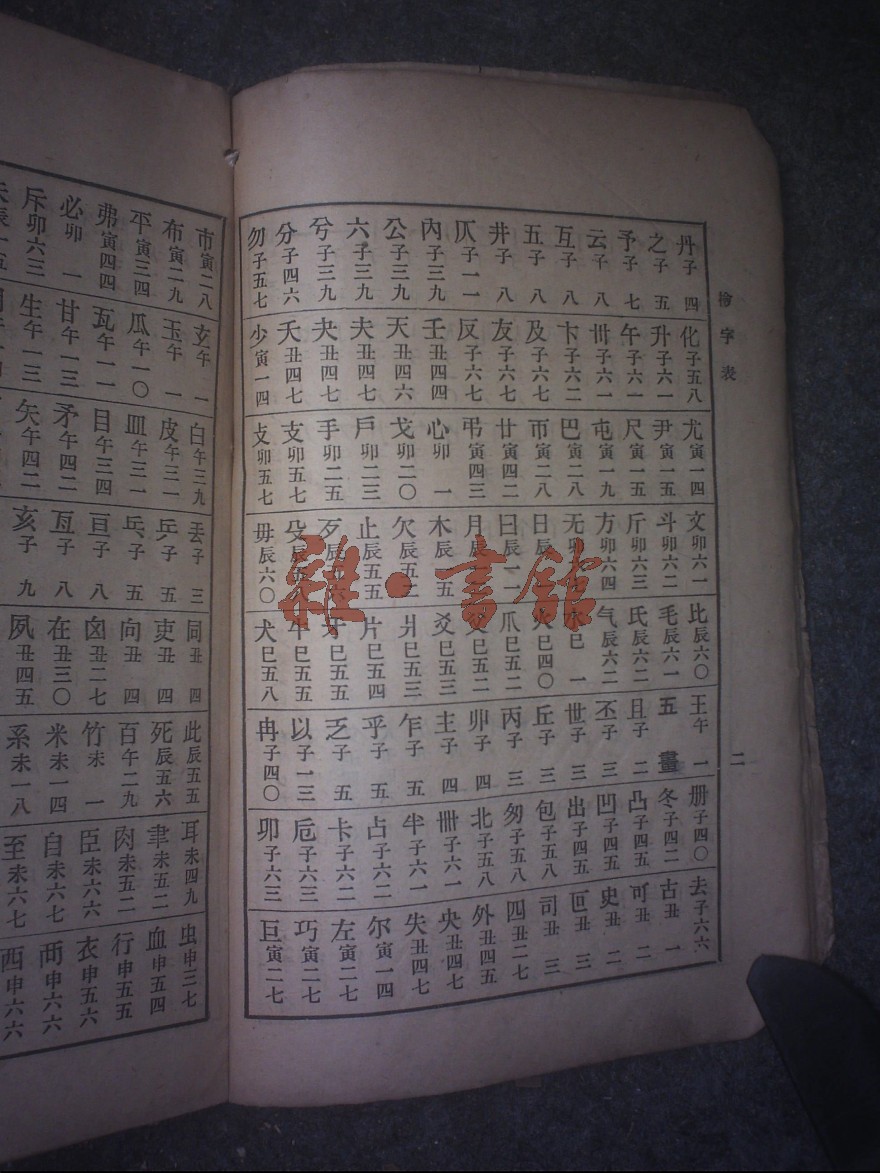 檢字表
二
丹子四
之子五
予子七
云子八
互子八
五子八
井子八
仄子一一
內子三九
公子三九
六子三九
兮子三九
分子四六
勿子五七
化子五八
升子六一
午子六一
卅子六一
卞子六二
及子六七
友子六七
反子六七
壬丑四四
天丑四六
夫丑四七
夬丑四七
夭丑四七
少寅一四
尤寅一四
尹寅一五
尺寅一五
屯寅一九
巴寅二八
帀寅二八
廿寅四二
弔寅四三
心卯一
戈卯二〇
戶卯二三
手卯二五
支卯五七
攴卯五七
文卯六一
斗卯六二
斤卯六三
方卯六四
无卯
日辰
曰辰一一
月辰
木辰五
欠辰五二
止辰五五
歹辰五六
殳辰五八
毋辰六〇
比辰六〇
毛辰六一
氏辰六二
气辰六二
水巳一
火巳四〇
爪巳五二
父巳五二
爻巳五三
爿巳五三
片巳五四
牙巳五五
牛巳五五
犬巳五八
王午一
五畫
且子二
丕子三
世子三
丘子三
丙子三
卯子四
主子四
乍子五
乎子五
乏子五
以子一三
冉子四〇
册子四〇
冬子四二
凸子四五
凹子四五
出子四五
包子五八
匆子五八
北子五八
卌子六一
半子六一
占子六二
卡子六二
卮子六三
卯子六三
去子六六
古丑一
可丑二
史丑二
叵丑三
司丑三
四丑二七
外丑四五
央丑四七
失丑四七
尔寅一四
左寅二七
巧寅二七
巨寅二七
市寅二八
布寅二九
平寅三四
弗寅四四
必卯一
斥卯六三
玄午一
玉午一
瓜午一〇
瓦午一一
甘午一三
生午一三
白午三九
皮午三一
皿午三一
目午三四
矛午四二
矢午四二
丟子三
乒子五
乓子五
亘子八
亙子八
亥子九
同丑四
吏丑四
向丑四
囟丑二七
在丑三〇
夙丑四五
此辰五五
死辰五六
百午二九
竹未一
米未一四
系未一八
耳未四九
聿未五二
肉未五二
臣未六六
自未六七
至未六七
虫申三七
血申五四
行申五五
衣申五六
襾申六六
西申六六
雜·書館